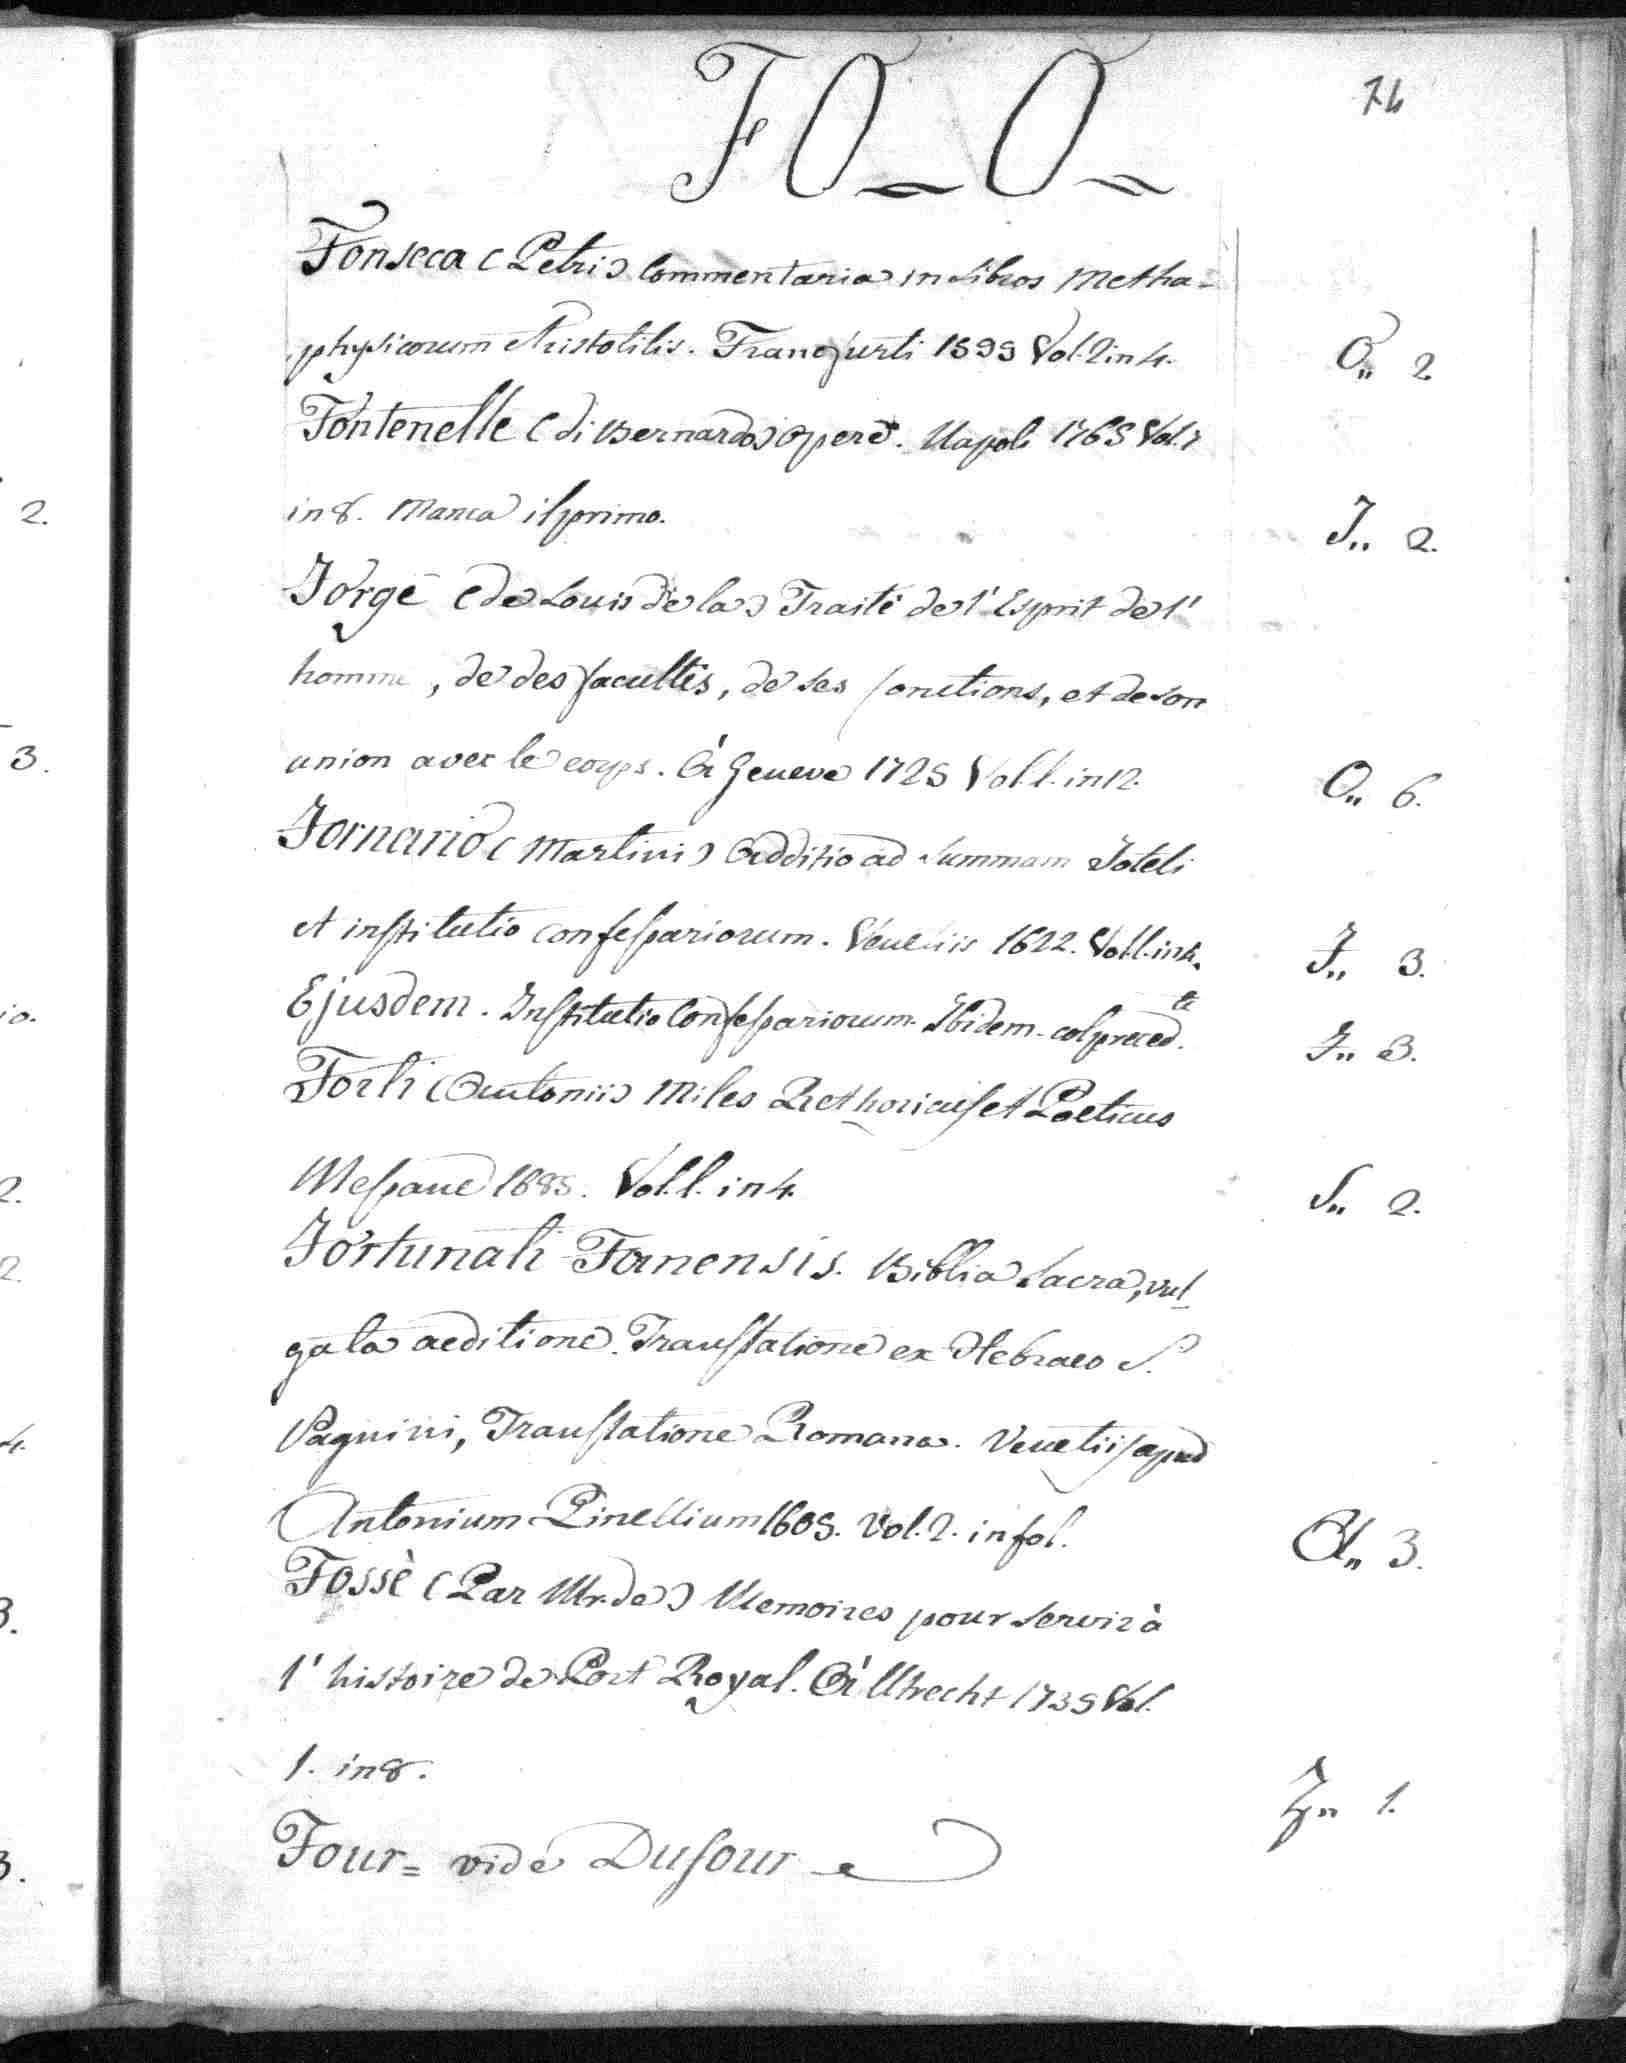 FO_O_
74
Fonseca (Petri) Commentaria in Libros Metha=
physicorum Aristotilis. Francfurti 1599 Vol. 2 in 4. O,, 2
Fontenelle (di Bernardo) Opere. Napoli 1765 Vol. 7
in 8. Manca il primo. I,, 2.
Forge (de Louis de la) Traité de l'Esprit de l'
homme, de des facultés, de ses fonctions, et de son
union avec le corps. A' Geneve 1725 Vol. 1. in 12. O,, 6.
Fornario (Martini) Additio ad Summam Toteli
et institutio confessariorum. Venetiis 1622. Vol. 1. in 4. I,, 3.
Ejusdem. Institutio Confessariorum. Ibidem. col preced.te I,, 3.
Forti (Antonii) Miles Rethoricus et Poeticus
Messane 1685. Vol. 1. in 4. S,, 2.
Fortunati Fanensis. Biblia Sacra, vul_
gata aeditione. Translatione ex Hebraeo S.
Pagnini, Translatione Romana. Venetiis apud
Antonium Pinellium 1609. Vol. 2. in fol. A,, 3.
Fossè (Par Mr. de) Memoires pour servir à
l'histoire de Port Royal. A' Utrecht 1739 Vol.
1. in 8. Z,, 1.
Four = vide Dufour
2.
3.
io.
2.
2.
4.
3.
3.